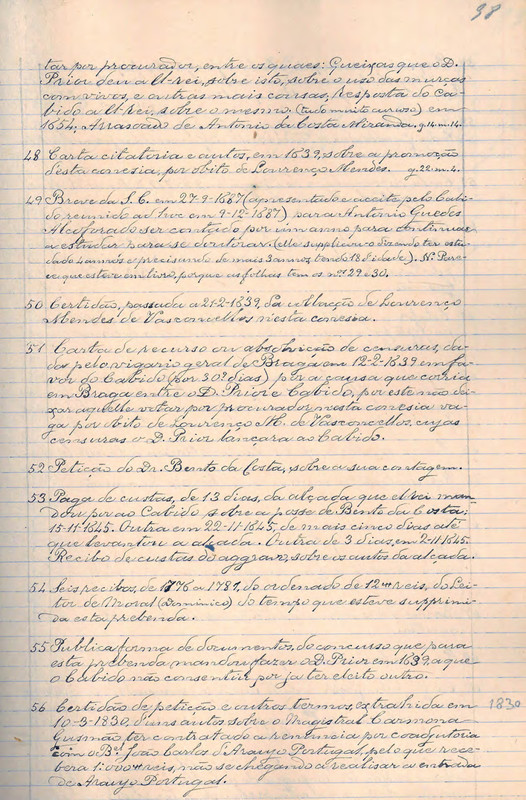 38
tar por procurador, entre os quaes: Queixas que o D.
Prior deu a El-rei, sobre isto, sobre o uso das murças
com vivos, e outras mais cousas, resposta do Ca-
bido a El-rei, sobre o mesmo. (tudo muito curioso) em
1654; Arrasoado de Antonio da Costa Miranda. g. 14. m. 14.
48 Carta citatoria e autos, em 1639, sobre a promoção
d'esta conesia, por obito de Lourenço Mendes. g. 22. m. 4.
49 Breve da S. C. em 27-9-1687 (apresentado e aceite, pelo Cabi-
do, reunido ad hoc em 9-12-1687) para Antonio Guedes
Alcoforado ser contado por um anno para continuar
a estudar para se doutorar. (elle supplicára dizendo ter estu-
dado 4 annos e precisando de mais 3 annos, tendo 18 d'idade). Nº Pare-
ce que esteve em livro, porque as folhas tem os nos. 29 e 30.
50 Certidão, passada a 21-2-1839, da collação de Lourenço
Mendes de Vasconcellos n'esta conesia.
51 Carta de recurso ou absolvição de censuras, da-
da pelo vigario geral de Braga em 12-2-1839 em fa-
vor do Cabido (por 30 dias) por a causa que corria
em Braga entre o D. Prior e Cabido, por este não dei-
xar aquelle votar por procurador, nesta conesia va-
ga por obito de Lourenço M. de Vasconcellos, cujas
censuras o D. Prior lançara ao Cabido.
52 Petição do Dr. Bento da Costa, sobre a sua contagem.
53 Paga de custas, de 13 dias, da alçada que el-rei man-
dou por ao Cabido, sobre a posse de Bento da Costa:
15-11-1645. Outra em 22-11-1645, de mais cinco dias até
que levantou a alçada. Outra de 3 dias, em 2-11-1645.
Recibo de custas do aggravo, sobre os autos da alçada.
54 Seis recibos, de 1776 a 1781, do ordenado de 12 reis, do Lei-
tor de Moral (Dominico) do tempo que esteve supprimi-
da esta prebenda.
55 Publica forma de documentos, do concurso que para
esta prebenda mandou fazer o D. Prior em 1639, a que
o Cabido não consentiu, por já ter eleito outro.
56 Certidão de petição e outros termos, extrahida em 1830
10-3-1830, d'uns autos sobre o Magistral Carmona
Gusmão ter contratado a renuncia por coadjutoria
com o Bel. João Carlos de Araujo Portugal, pelo que rece-
bera 1:000 reis, não se chegando a realisar a entrada
de Araujo Portugal.